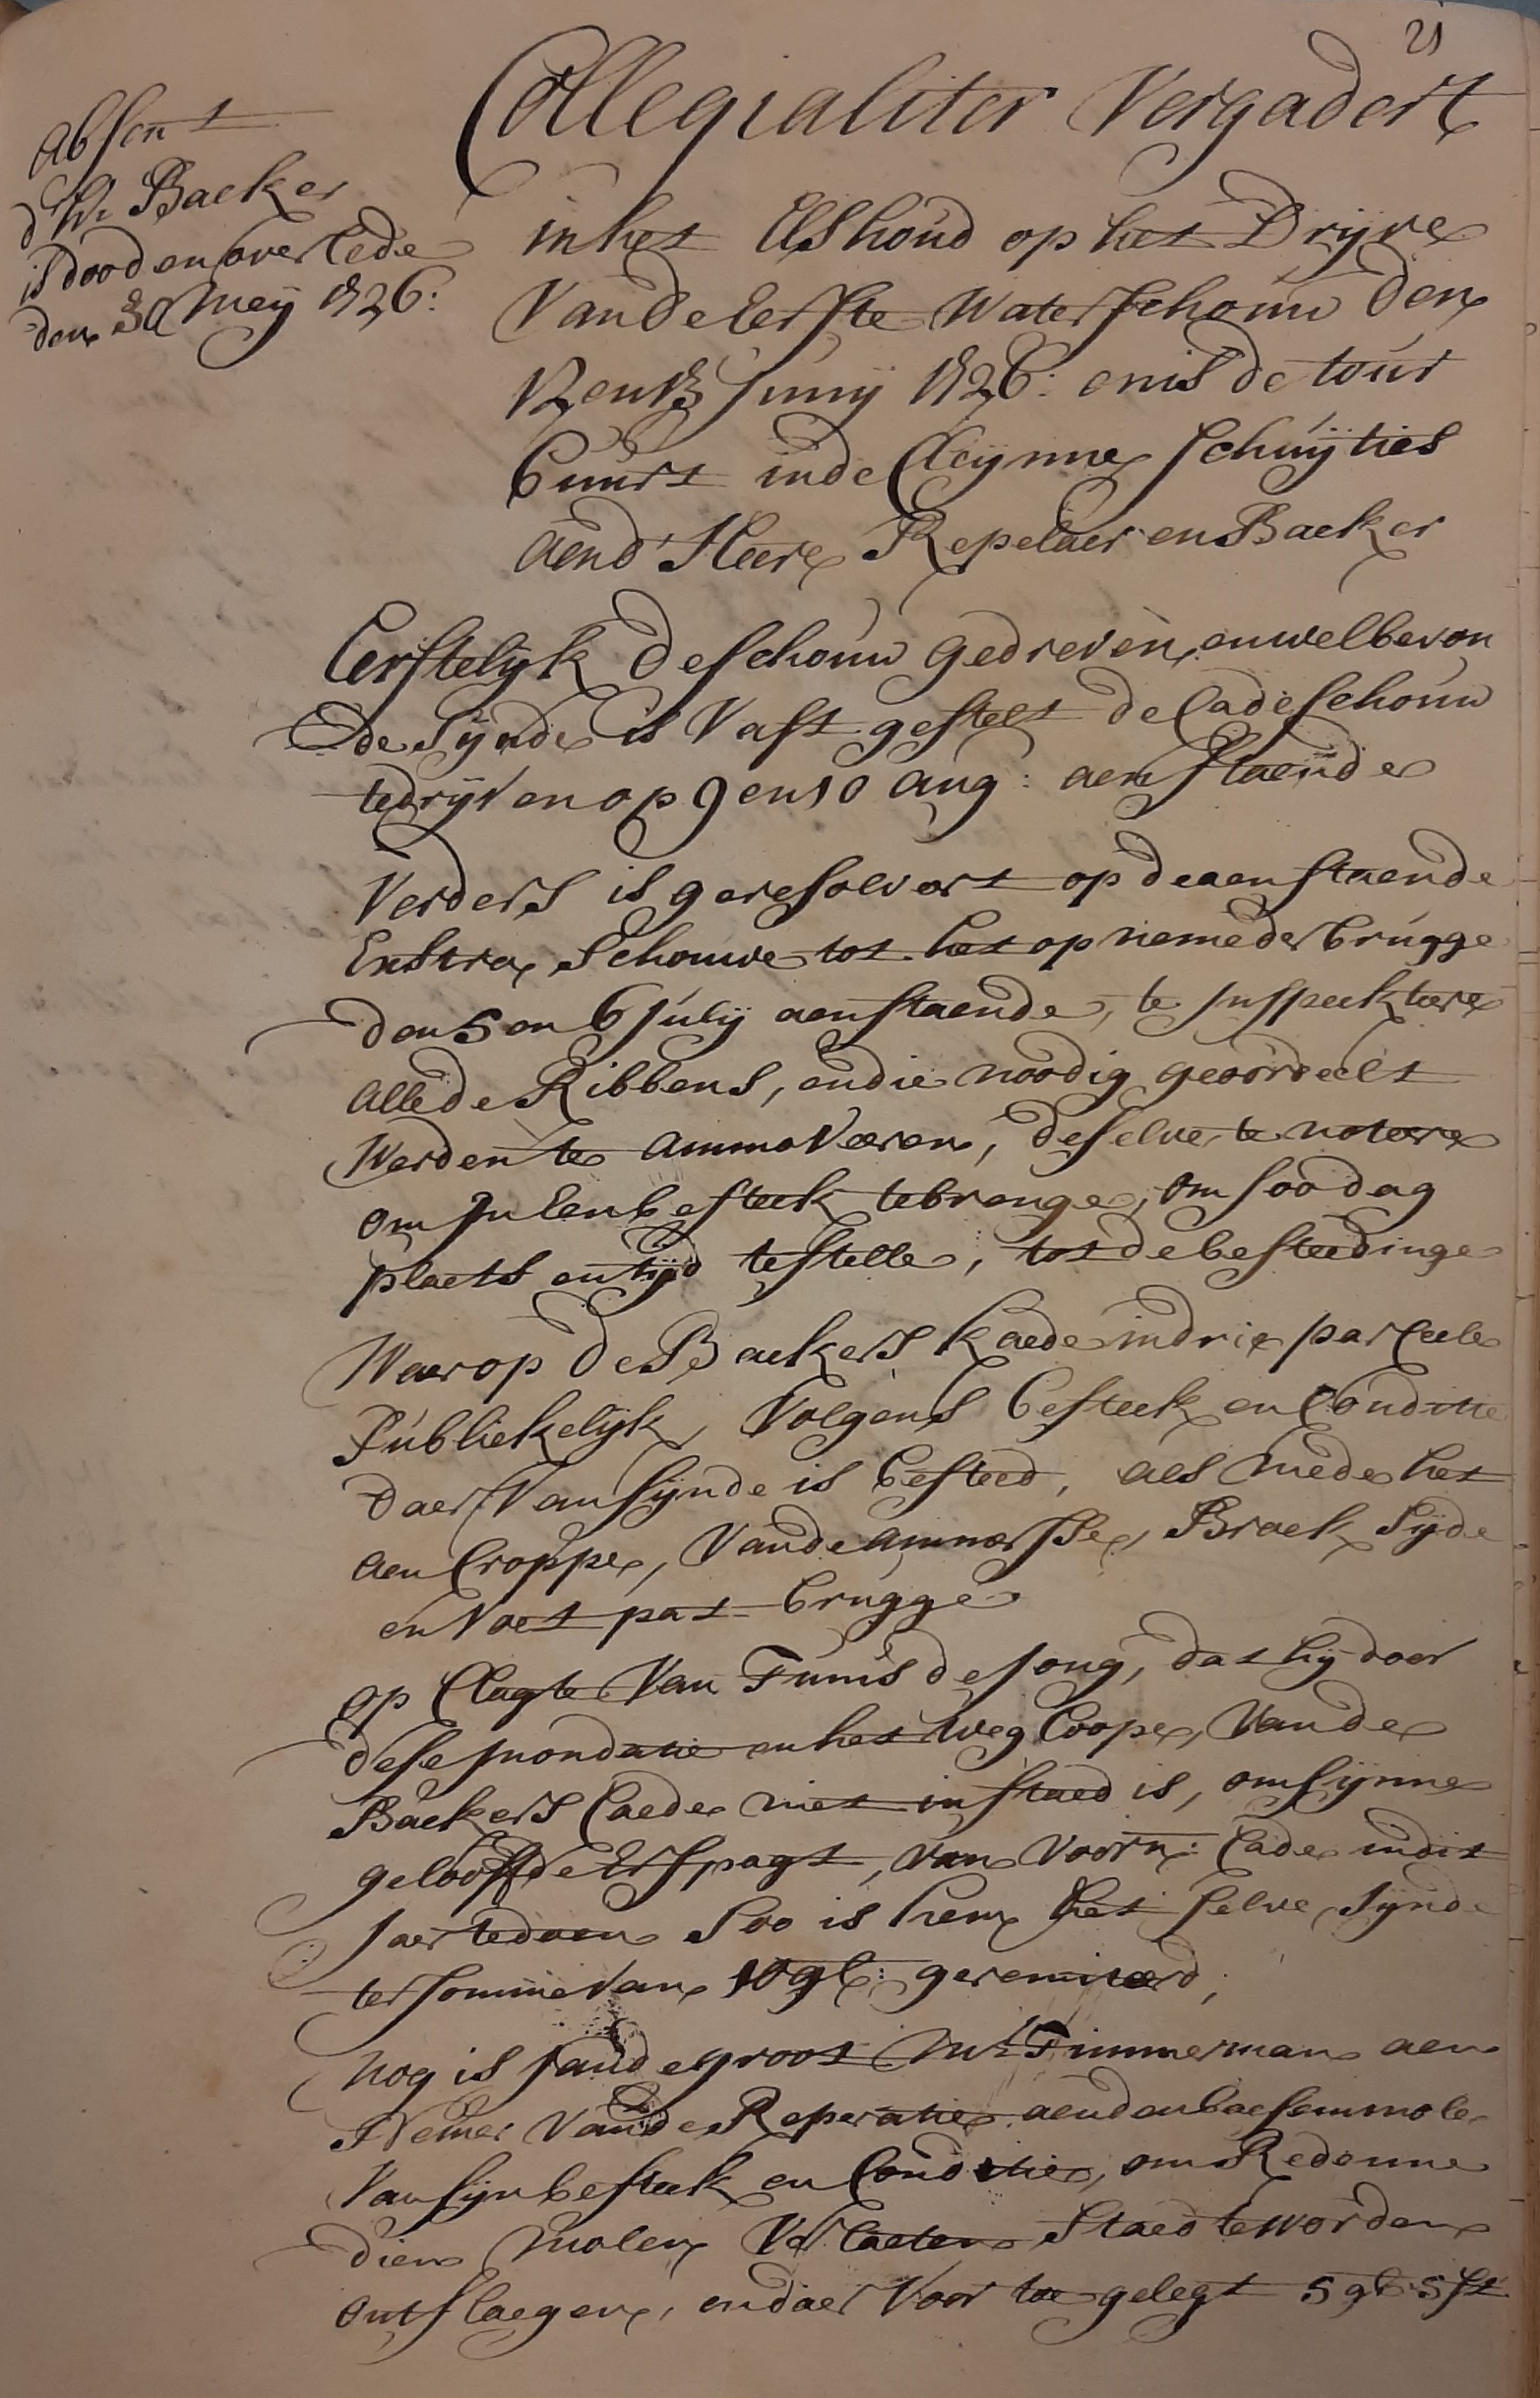 21
Absent
d'Hr Backer
is dood en overlede
den 30 Meij 1726:
Collegialiter Vergadert
in het Elshoud op het Drijve
Van de Eerste Waterschouw den
12 en 13 Junij 1726: en is de tour
buurt in de Cleijnne schuijties
aen d'Heere Repelaer en Backer
Eerstelijk de schouw gedreven, en wel bevon
de sijnde is Vast gestelt de Cade schouw
te drijven op 9 en 10 aug: aenstaende
Verders is geresolvert op de aenstaende
Exstra Schouwe tot het opneme der brugge
den 5 en 6 Julij aenstaende, te Inspecktere
alle de Ribbens, en die noodig geoordeelt
Werden te ammoveeren, deselve te notere
om In Een besteek te brenge, om soo dag
plaets en tijd te stelle, tot de bestedinge
Waer op de Backers Kaede in drie parceele
Publiekelijk, Volgens besteek en Conditie
daer Van sijnde is besteed, als mede het
aen Croppe, Van de ammersse, Broek Sijde
en Voet pat brugge
op Clagte Van Tunis de Jong, dat hij door
dese Inondatie en het weg Loope, Van de
Backers Caede niet in staed is, om sijnne
geloofde Erfpagt, van voorn: Cade in dit
Jaer te doen Soo is hem het selve, Sijnde
ter somme van 10 gl: geremiteerd;
Nog is Jan de groot Mr Timmerman aen
Nemer Van de Reperatie aen den baesemmole
Van sijn besteek en Conditie, om Redenne
dien Molen Verlaeten Staed te worden
ontslaegen, en daer Voor toe gelegt 5 gl: 5 st